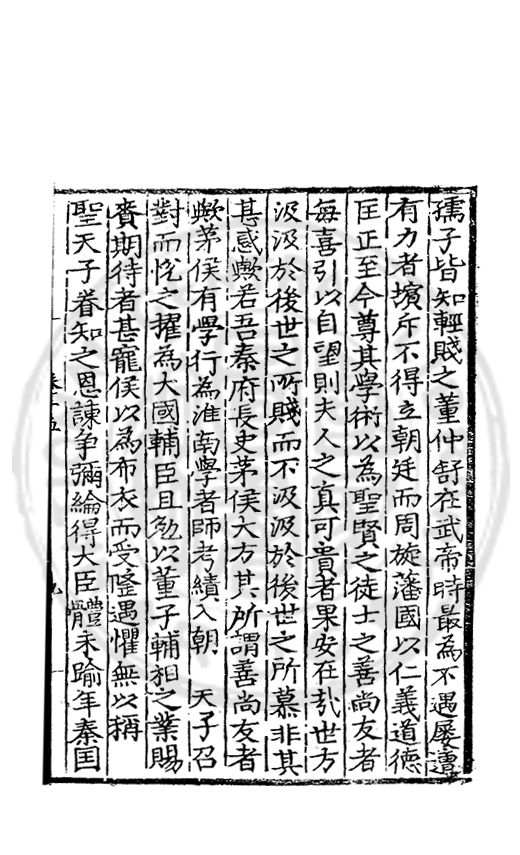 孺子皆知輕賤之董仲舒在武帝時最為不遇屢遭
有力者擯斥不得立朝廷而周旋藩國以仁義道德
匡正至今尊其學術以為聖賢之徒士之善尚友者
每喜引以自望則夫人之真可貴者果安在㢤世方
汲汲於後世之所賤而不汲汲於後世之所慕非其
甚惑歟若吾秦府長史茅侯大方其所謂善尚友者
歟茅侯有學行為淮南學者師考績入朝　天子召
對而悅之擢為大國輔臣且勉以董子輔相之業賜
賚期待者甚寵侯以為布衣而受隆遇懼無以稱
聖天子眷知之恩諫爭彌綸得大臣體未踰年秦國